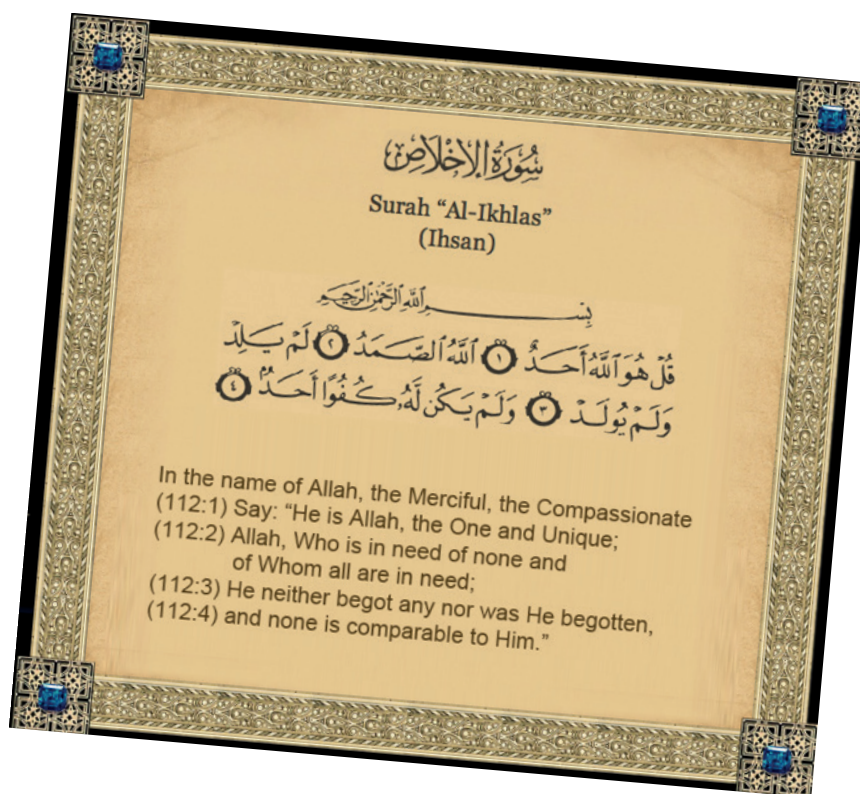 سُورَةُ الإِخْلَاصِ
Surah “Al-Ikhlas”
(Ihsan)
بِسْمِ ٱللَّهِ ٱلرَّحْمَٰنِ ٱلرَّحِيمِ
قُلْ هُوَ ٱللَّهُ أَحَدٌ ١ ٱللَّهُ ٱلصَّمَدُ ٢ لَمْ يَلِدْ
وَلَمْ يُولَدْ ٣ وَلَمْ يَكُن لَّهُۥ كُفُوًا أَحَدٌۢ ٤
In the name of Allah, the Merciful, the Compassionate
(112:1) Say: “He is Allah, the One and Unique;
(112:2) Allah, Who is in need of none and
of Whom all are in need;
(112:3) He neither begot any nor was He begotten,
(112:4) and none is comparable to Him.”